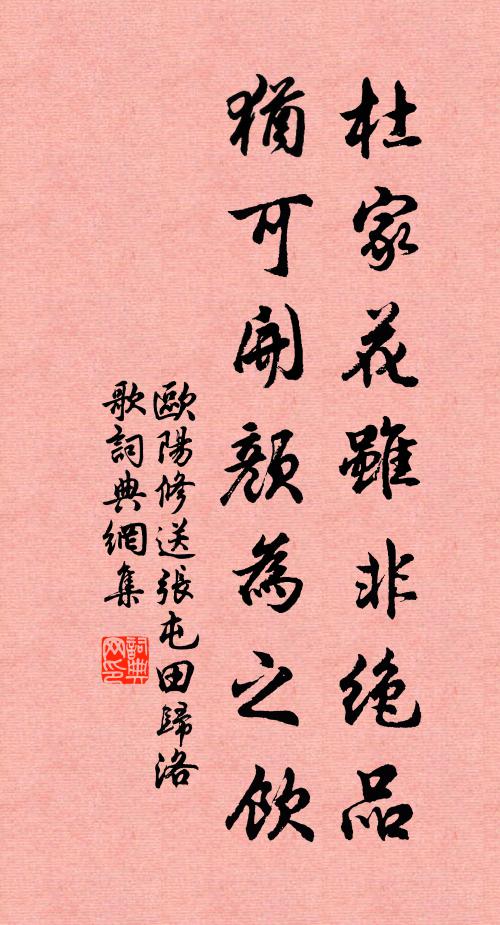 杜家花雖非絶品
猶可開顏為之飲
歐陽修送張屯田歸洛
歌詞典網集
詞典
网印